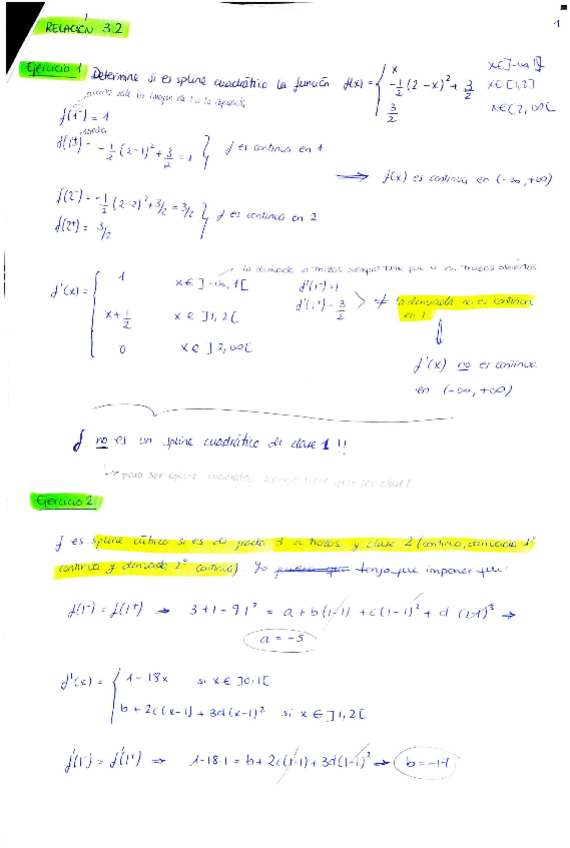 RELACIÓN 3.2
1
Ejercicio 1 Determine si es spline cuadrático la función f(x) = { x x∈]-∞,1]
-1/2 (2-x)² + 3/2 x∈[1,2]
3/2 x∈[2,∞[
f(1⁻) = 1
f(1⁺) = -1/2 (2-1)² + 3/2 = 1 } f es continua en 1
⟹ f(x) es continua en (-∞,+∞)
f(2⁻) = -1/2 (2-2)² + 3/2 = 3/2 } f es continua en 2
f(2⁺) = 3/2
la derivada a trozos siempre tiene que ir en trozos abiertos
f'(x) = { 1 x∈]-∞,1[ f'(1⁻) = 1
x+1/2 x∈]1,2[ f'(1⁺) = 3/2 > ≠ la derivada no es continua en 1
0 x∈]2,∞[
⇓
f'(x) no es continua
en (-∞,+∞)
f no es un spline cuadrático de clase 1 !!
para ser spline cuadrático siempre tiene que ser clase 1
Ejercicio 2
f es spline cúbico si es de grado 3 a trozos y clase 2 (continua, derivada 1ª
continua y derivada 2ª continua). Yo tengo que imponer que:
f(1⁻) = f(1⁺) → 3+1-9·1² = a+b(1-1)+c(1-1)²+d(1-1)³ →
a = -5
f'(x) = { 1-18x si x∈]0,1[
b+2c(x-1)+3d(x-1)² si x∈]1,2[
f'(1⁻) = f'(1⁺) ⟹ 1-18·1 = b+2c(1-1)+3d(1-1)² → b = -17